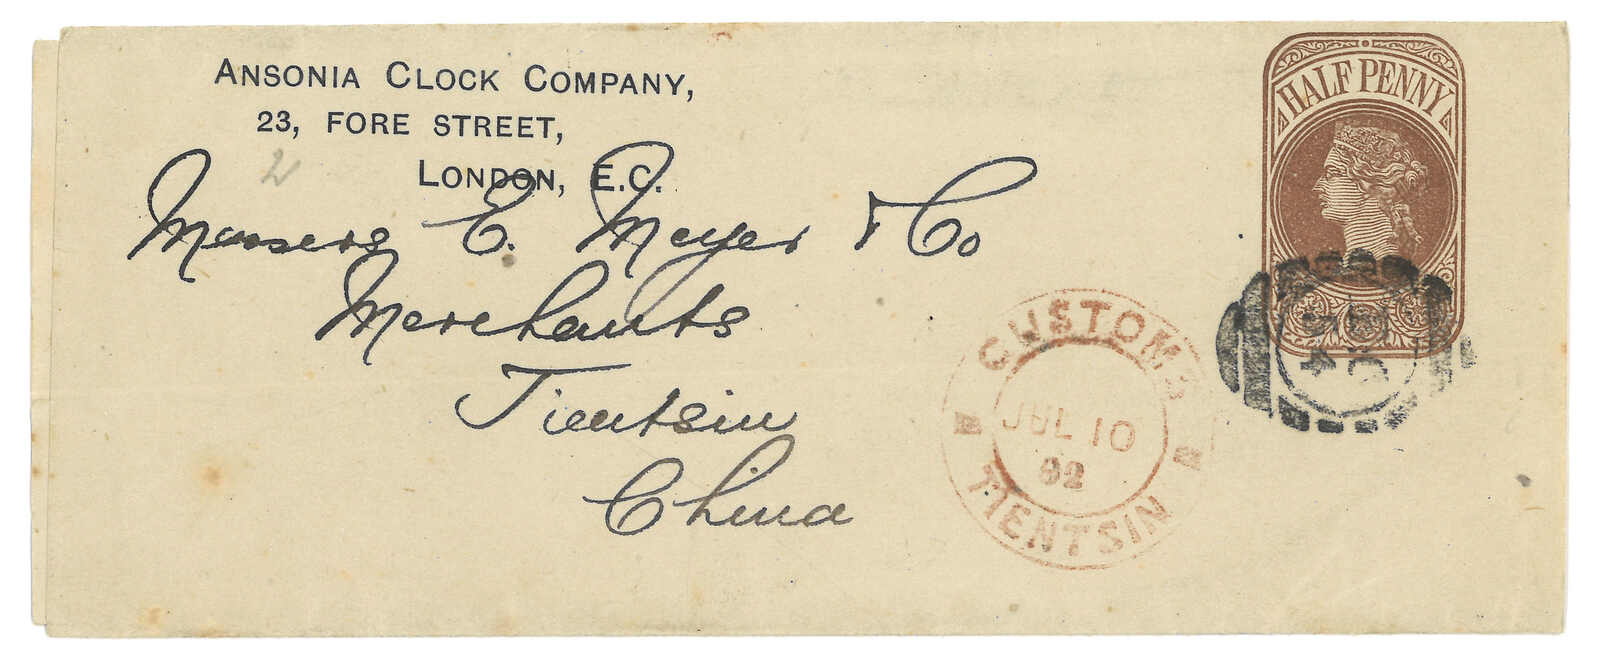 ANSONIA CLOCK COMPANY,
23, FORE STREET,
LONDON, E.C.
Messers E. Meyer & Co
Merchants
Tientsin
China
HALF PENNY
CUSTOMS
JUL 10
92
TIENTSIN